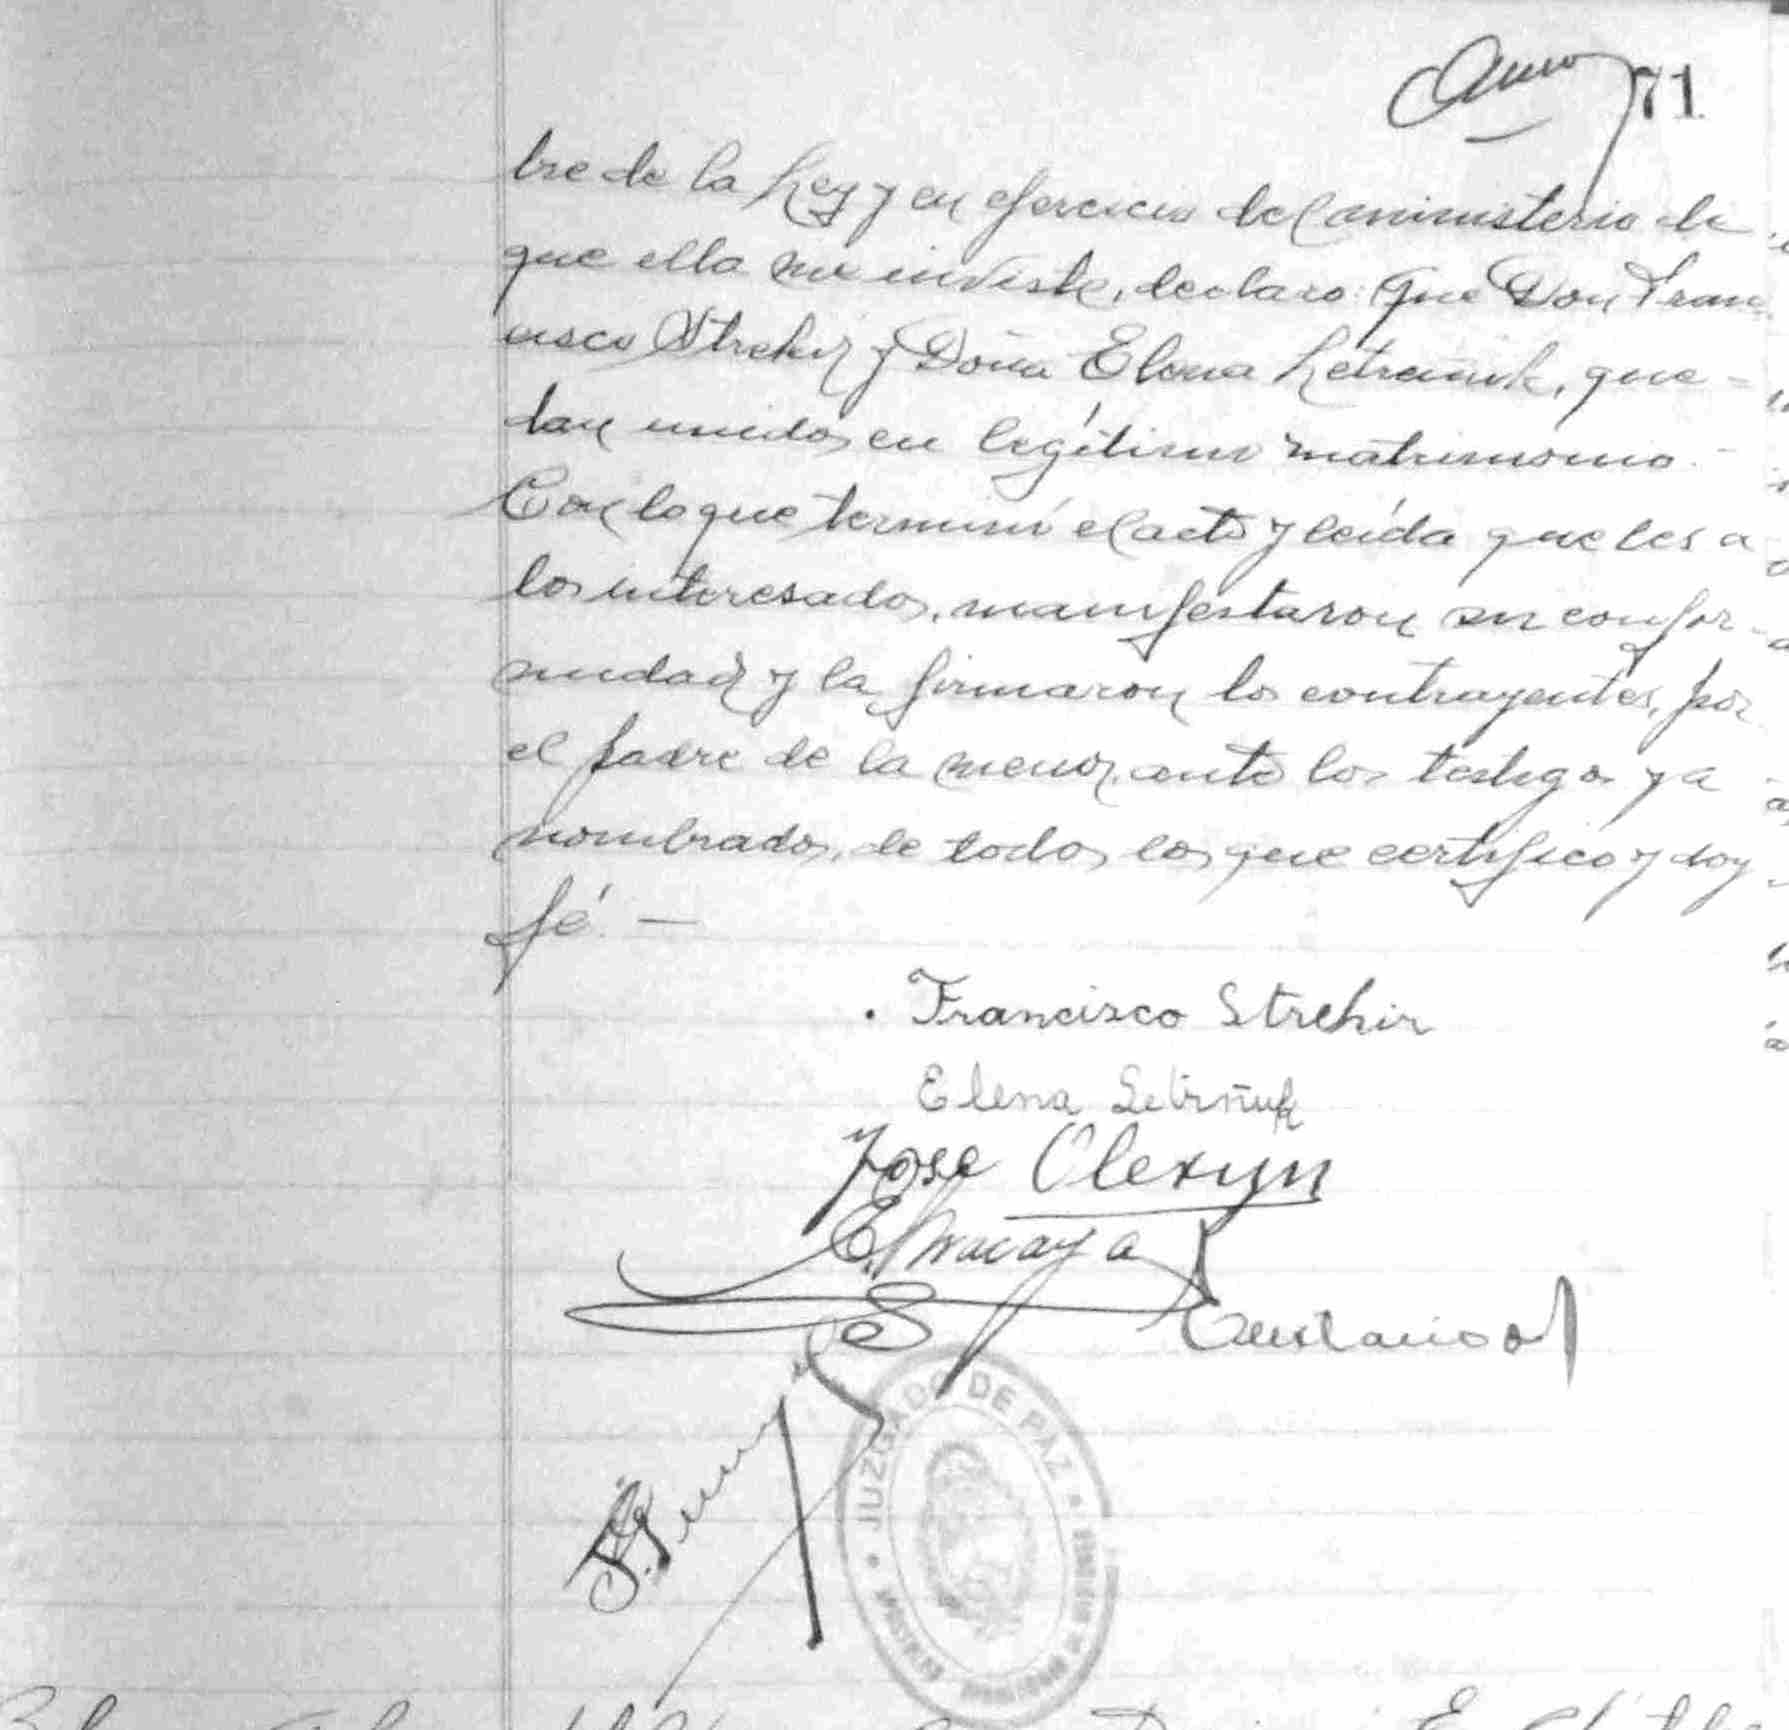 71
bre de la Ley y en ejercicio del ministerio de
que ella me inviste, declaro: Que Don Fran
cisco Strehir y Doña Elena Letrañuk, que-
dan unidos en legítimo matrimonio.-
Con lo que terminó el acto y leída que les a
los interesados, manifestaron su confor-
midad y la firmaron los contrayentes, por
el padre de la menor, ante los testigos ya
nombrados, de todos los que certifico y doy
fé. —
Francisco Strehir
Elena
Jose Olexyn
JUZGADO DE PAZ